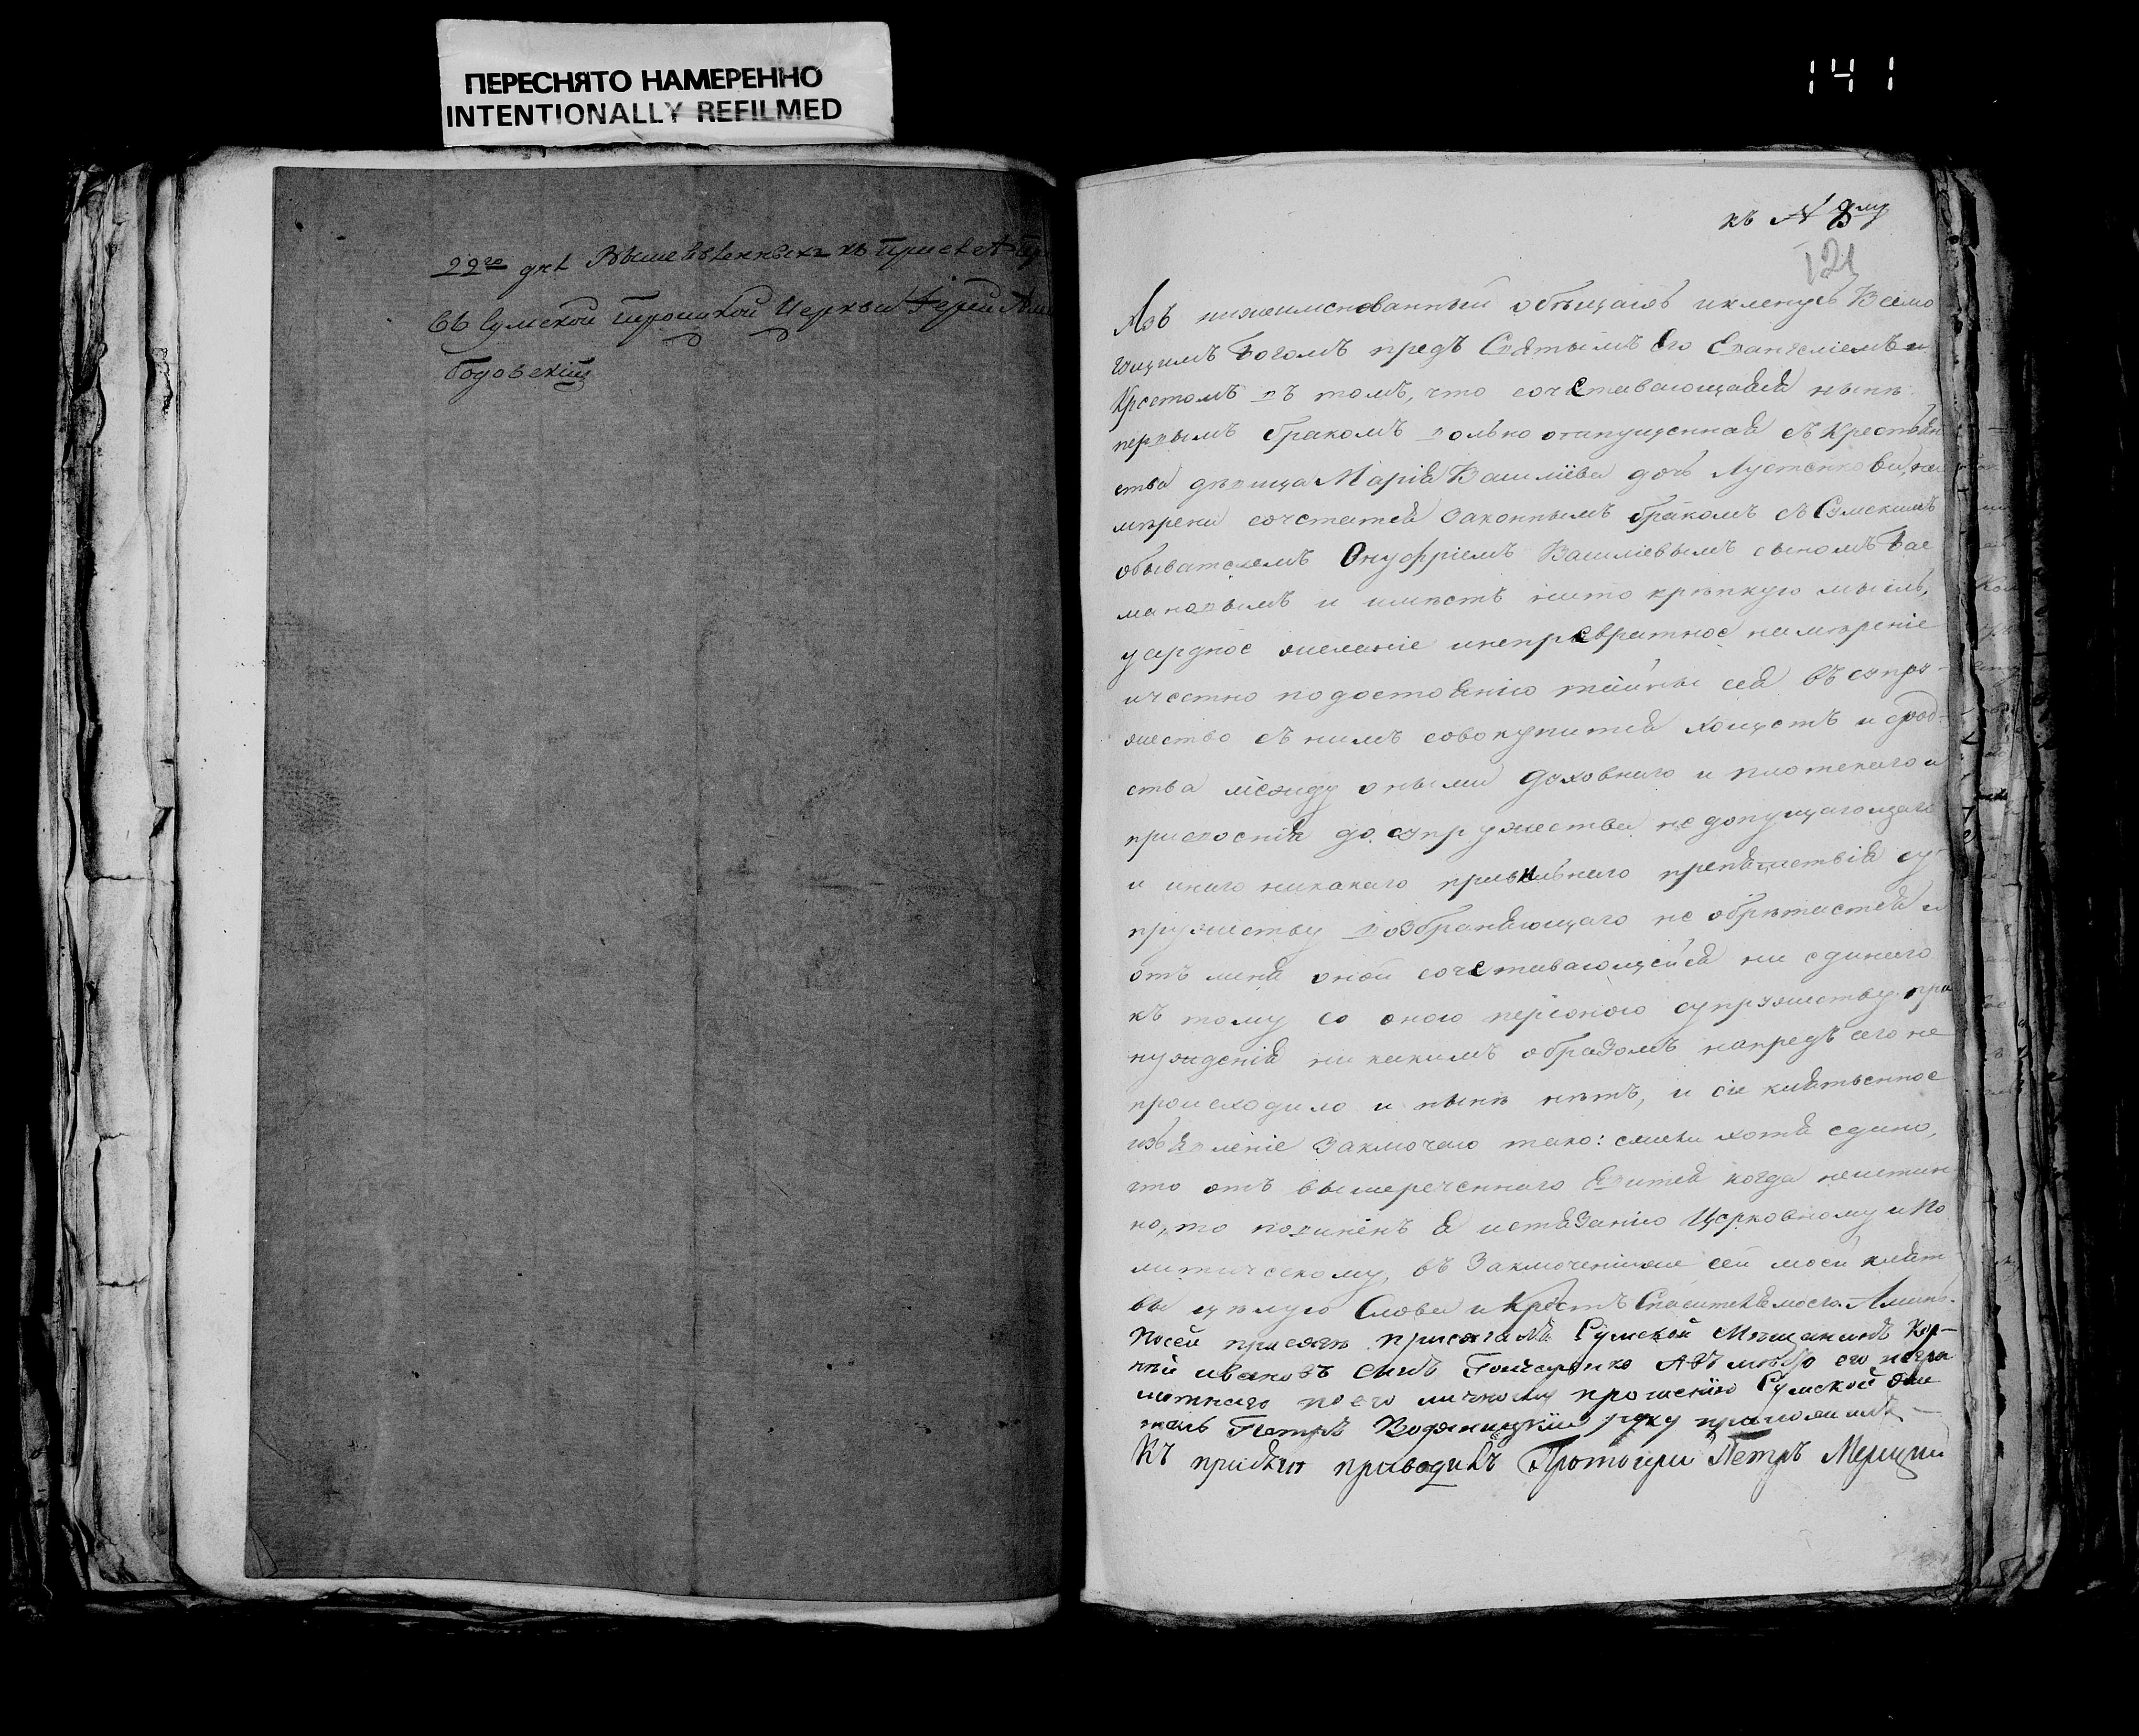 ПЕРЕСНЯТО НАМЕРЕННО
INTENTIONALLY REFILMED
141
22го дня
въ Сумской Троицкой Церкви Іерей
къ № 8му
121
Азъ нижеимянованный обѣщаюсь и кленусь Всемо
гущимъ Богомъ предъ Святымъ Его Евангеліемъ и
Крестомъ въ томъ, что сочетавающаяся нынѣ
первымъ бракомъ вольно отпущенная съ Крестьян
ства дѣвица Марія Василіева дочь на
мѣрена сочетатся законнымъ бракомъ съ Сумскимъ
обывателемъ Онуфріемъ Василіевымъ сыномъ
и имѣетъ на то крѣпкую мысль,
усердное желаніе и непревратное намѣреніе
и честно по достоянію тайны сея въ супру-
жество съ нимъ совокупится хощетъ и срод-
ства между оными духовнаго и плотскаго и
присвоенія до супружества не допущающаго
и инаго никакаго правильнаго препятствія су-
пружеству возбраняющаго не обрѣтается и
отъ меня оной сочетавающейся ни единаго
къ тому со оною персоною супружеству при
нужденія никакимъ образомъ напредъ сего не
происходило и нынѣ нѣтъ, и сіе клятвенное
изъявленіе заключаю тако: ежели хотя едино,
что отъ вышереченнаго явится когда неистин
но, то повиненъ я истязанію Церковному и По
литическому, въ заключеніиже сей моей клят-
вы цѣлую Слова и Крестъ Спасителя моего. Аминь.
По сей присягѣ присягалъ Сумской Мѣщанинъ Кор-
ній Ивановъ сынъ Гончаренко а вмѣсто его негра
мотнаго по его личному прошенію Сумской
Петръ руку приложилъ
Къ присягѣ приводилъ Протоіерей Петръ